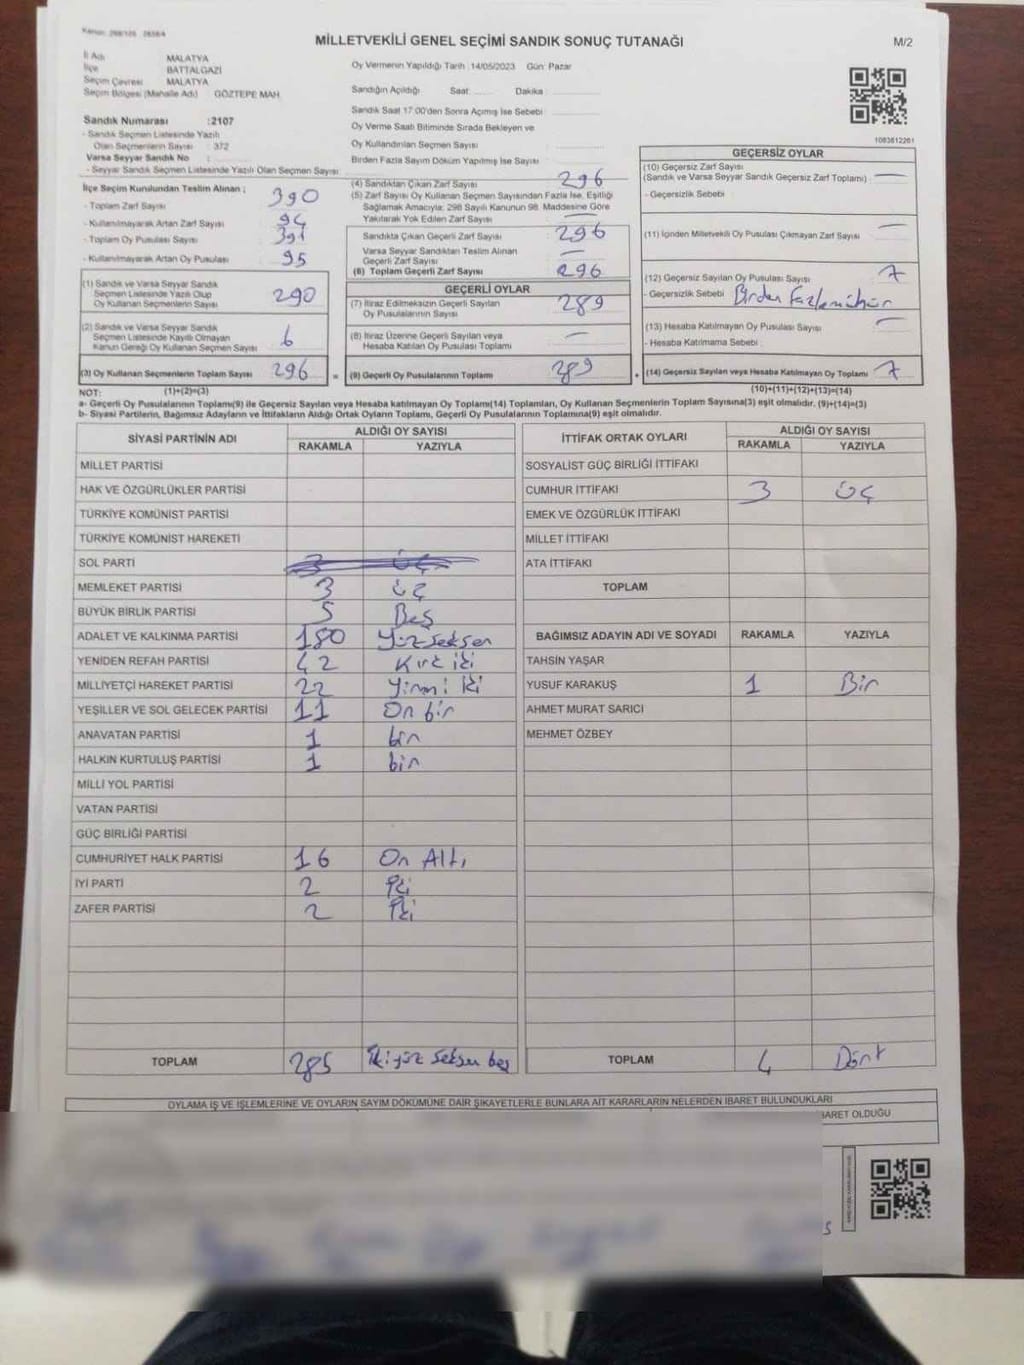 MİLLETVEKİLİ GENEL SEÇİMİ SANDIK SONUÇ TUTANAĞI
M/2
İl Adı MALATYA
İlçe BATTALGAZİ
Seçim Çevresi MALATYA
Seçim Bölgesi (Mahalle Adı) GÖZTEPE MAH
Sandık Numarası :2107
- Sandık Seçmen Listesinde Yazılı
Olan Seçmenlerin Sayısı : 372
Varsa Seyyar Sandık No :
- Seyyar Sandık Seçmen Listesinde Yazılı Olan Seçmen Sayısı
Oy Vermenin Yapıldığı Tarih :14/05/2023 Gün: Pazar
Sandığın Açıldığı Saat Dakika :
Sandık Saat 17:00'den Sonra Açımış İse Sebebi :
Oy Verme Saati Bitiminde Sırada Bekleyen ve
Oy Kullandırılan Seçmen Sayısı
Birden Fazla Sayım Döküm Yapılmış İse Sayısı
1083612261
İlçe Seçim Kurulundan Teslim Alınan ;
- Toplam Zarf Sayısı 390
- Kullanılmayarak Artan Zarf Sayısı 94
- Toplam Oy Pusulası Sayısı 391
- Kullanılmayarak Artan Oy Pusulası 95
(1) Sandık ve Varsa Seyyar Sandık
Seçmen Listesinde Yazılı Olup
Oy Kullanan Seçmenlerin Sayısı 290
(2) Sandık ve Varsa Seyyar Sandık
Seçmen Listesinde Kayıtlı Olmayan
Kanun Gereği Oy Kullanan Seçmen Sayısı 6
(3) Oy Kullanan Seçmenlerin Toplam Sayısı 296 =
(4) Sandıktan Çıkan Zarf Sayısı 296
(5) Zarf Sayısı Oy Kullanan Seçmen Sayısından Fazla İse, Eşitliği
Sağlamak Amacıyla; 298 Sayılı Kanunun 98. Maddesine Göre
Yakılarak Yok Edilen Zarf Sayısı —
Sandıkta Çıkan Geçerli Zarf Sayısı 296
Varsa Seyyar Sandıktan Teslim Alınan
Geçerli Zarf Sayısı —
(6) Toplam Geçerli Zarf Sayısı 296
GEÇERLİ OYLAR
(7) İtiraz Edilmeksizin Geçerli Sayılan
Oy Pusulalarının Sayısı 289
(8) İtiraz Üzerine Geçerli Sayılan veya
Hesaba Katılan Oy Pusulası Toplamı —
(9) Geçerli Oy Pusulalarının Toplamı 289 +
GEÇERSİZ OYLAR
(10) Geçersiz Zarf Sayısı
(Sandık ve Varsa Seyyar Sandık Geçersiz Zarf Toplamı) —
- Geçersizlik Sebebi
(11) İçinden Milletvekili Oy Pusulası Çıkmayan Zarf Sayısı —
(12) Geçersiz Sayılan Oy Pusulası Sayısı 7
- Geçersizlik Sebebi Birden fazla mühür
(13) Hesaba Katılmayan Oy Pusulası Sayısı —
- Hesaba Katılmama Sebebi
(14) Geçersiz Sayılan veya Hesaba Katılmayan Oy Toplamı 7
NOT: (1)+(2)=(3) (10)+(11)+(12)+(13)=(14)
a- Geçerli Oy Pusulalarının Toplamı(9) ile Geçersiz Sayılan veya Hesaba katılmayan Oy Toplamı(14) Toplamları, Oy Kullanan Seçmenlerin Toplam Sayısına(3) eşit olmalıdır. (9)+(14)=(3)
b- Siyasi Partilerin, Bağımsız Adayların ve İttifakların Aldığı Ortak Oyların Toplamı, Geçerli Oy Pusulalarının Toplamına(9) eşit olmalıdır.
SİYASİ PARTİNİN ADI ALDIĞI OY SAYISI
RAKAMLA YAZIYLA
MİLLET PARTİSİ
HAK VE ÖZGÜRLÜKLER PARTİSİ
TÜRKİYE KOMÜNİST PARTİSİ
TÜRKİYE KOMÜNİST HAREKETİ
SOL PARTİ 3 ÜÇ
MEMLEKET PARTİSİ 3 üç
BÜYÜK BİRLİK PARTİSİ 5 Beş
ADALET VE KALKINMA PARTİSİ 180 Yüz seksen
YENİDEN REFAH PARTİSİ 42 Kırk iki
MİLLİYETÇİ HAREKET PARTİSİ 22 Yirmi iki
YEŞİLLER VE SOL GELECEK PARTİSİ 11 On bir
ANAVATAN PARTİSİ 1 bir
HALKIN KURTULUŞ PARTİSİ 1 bir
MİLLİ YOL PARTİSİ
VATAN PARTİSİ
GÜÇ BİRLİĞİ PARTİSİ
CUMHURİYET HALK PARTİSİ 16 On Altı
İYİ PARTİ 2 İki
ZAFER PARTİSİ 2 İki
TOPLAM 285 İkiyüz seksen beş
İTTİFAK ORTAK OYLARI ALDIĞI OY SAYISI
RAKAMLA YAZIYLA
SOSYALİST GÜÇ BİRLİĞİ İTTİFAKI
CUMHUR İTTİFAKI 3 ÜÇ
EMEK VE ÖZGÜRLÜK İTTİFAKI
MİLLET İTTİFAKI
ATA İTTİFAKI
TOPLAM
BAĞIMSIZ ADAYIN ADI VE SOYADI RAKAMLA YAZIYLA
TAHSİN YAŞAR
YUSUF KARAKUŞ 1 Bir
AHMET MURAT SARICI
MEHMET ÖZBEY
TOPLAM 4 Dört
OYLAMA İŞ VE İŞLEMLERİNE VE OYLARIN SAYIM DÖKÜMÜNE DAİR ŞİKAYETLERLE BUNLARA AİT KARARLARIN NELERDEN İBARET BULUNDUKLARI
İBARET OLDUĞU